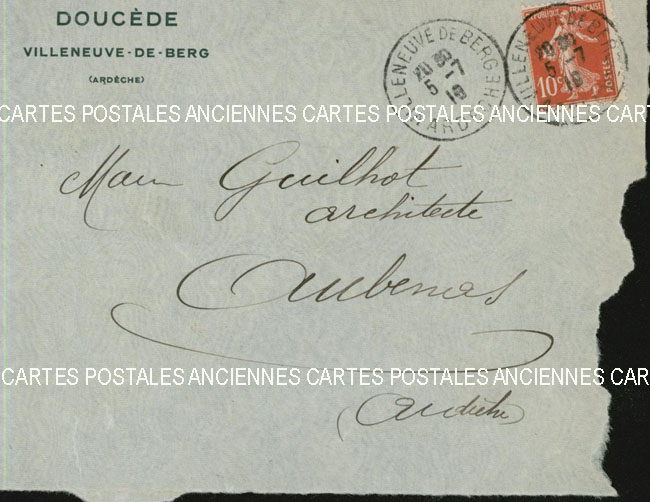 DOUCÈDE
VILLENEUVE-DE-BERG
(ARDÈCHE)
VILLENEUVE DE BERG
20 30
5-7
ARDÈCHE
RÉPUBLIQUE FRANÇAISE
10c
POSTES
VILLENEUVE DE BERG
20 30
5-7
CARTES POSTALES ANCIENNES CARTES POSTALES ANCIENNES CARTES
Guilhot
architecte
Aubenas
CARTES POSTALES ANCIENNES CARTES POSTALES ANCIENNES CAR
(Ardèche)